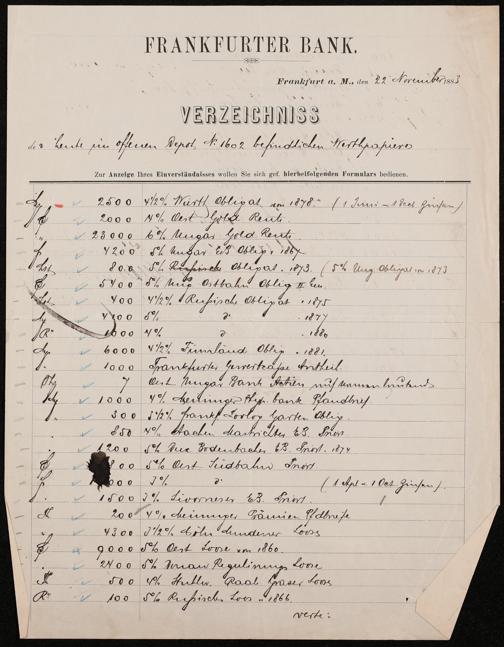 FRANKFURTER BANK.
Frankfurt a. M., den 22 November 1883
VERZEICHNISS
der heute im offenen Depot No. 1602 befindlichen Werthpapiere
Zur Anzeige Ihres Einverständnisses wollen Sie sich gef. hierbeifolgenden Formulars bedienen.
2500 4 1/2% Württ Obligat von 1878 (1 Juni - 1 Oct Zinsen)
2000 4% Oest Gold Rente
23,000 6% Ungar Gold Rente
4200 5% Ungar EB Oblig v 1867
800 5% Russische Obligat. 1873. (5% Ung. Obligat v. 1873
5400 5% Ung Ostbahn Oblig II Em.
400 4 1/2% Russische Obligat v 1875
5% d° 1877
1000 4% d° 1880
6000 4 1/2% Finnländ Oblig. 1881.
1000 Frankfurter Gewerbekasse Antheil.
7 Oest Ungar Bank Aktien auf Namen lautend
1000 4% Meininger Hyp. bank Pfandbrief
300 3 1/2% Frankf Zoolog Garten Oblig.
850 4% Aachen Mastrichter EB. Prior
1200 5% Dux Bodenbacher EB. Prior. 1874
800 5% Oest Südbahn Prior
3% d° (1 Apl - 1 Oct Zinsen)
1500 3% Livorneser EB. Prior.
200 4% Meininger Prämien Pfdbriefe
4300 3 1/2% Köln Mindener Loose
9000 5% Oest Loose von 1860.
2400 5% Donau Regulirungs Loose
500 4% Raab Grazer Loose
100 5% Russische Loos v 1866.
verte: